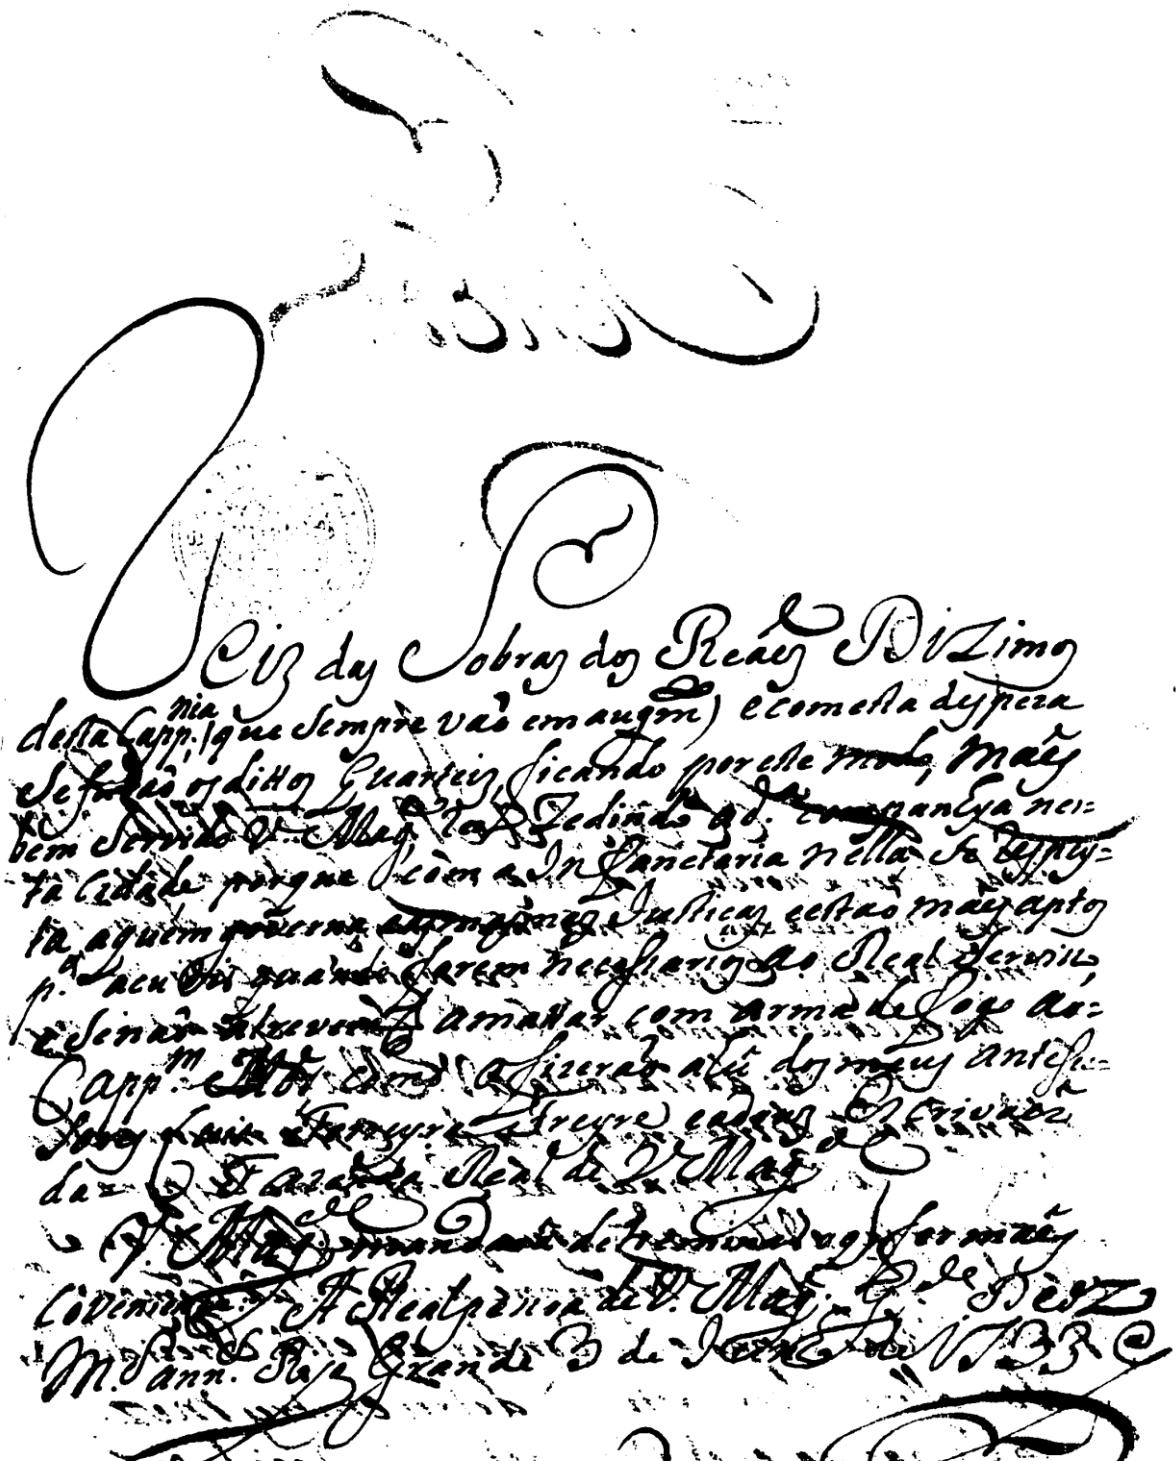 Reiz das Sobras dos Reaes Dizimos
desta Capp.nia (que sempre vaõ em augm.) e com esta despeza
se os dittos Quarteis, ficando por este modo, maes
bem servido V. Mag.de Rezedindo a d.a companhya nes=
ta Cidade porque com a Infanetaria nella se Respey=
ta a quem governa as Justicas e estaõ maes aptos
p.a acudir quando farem necessarios ao Real servisso,
e senaõ atreverem a mattar com arma de fogo ao=
Capp.m Mór como o fizeraõ a hũ dos meus antesse=
sores Luis Ferreyra Freyre e a dous Escrivaez
da= Fazenda Real de V. Mag.de
V. Mag.de mandará detreminar o que for maes
Conveniente. A Real peusia de V. Mag.de G.de Deos
M. ann. Rio Grande 3 de de 1733